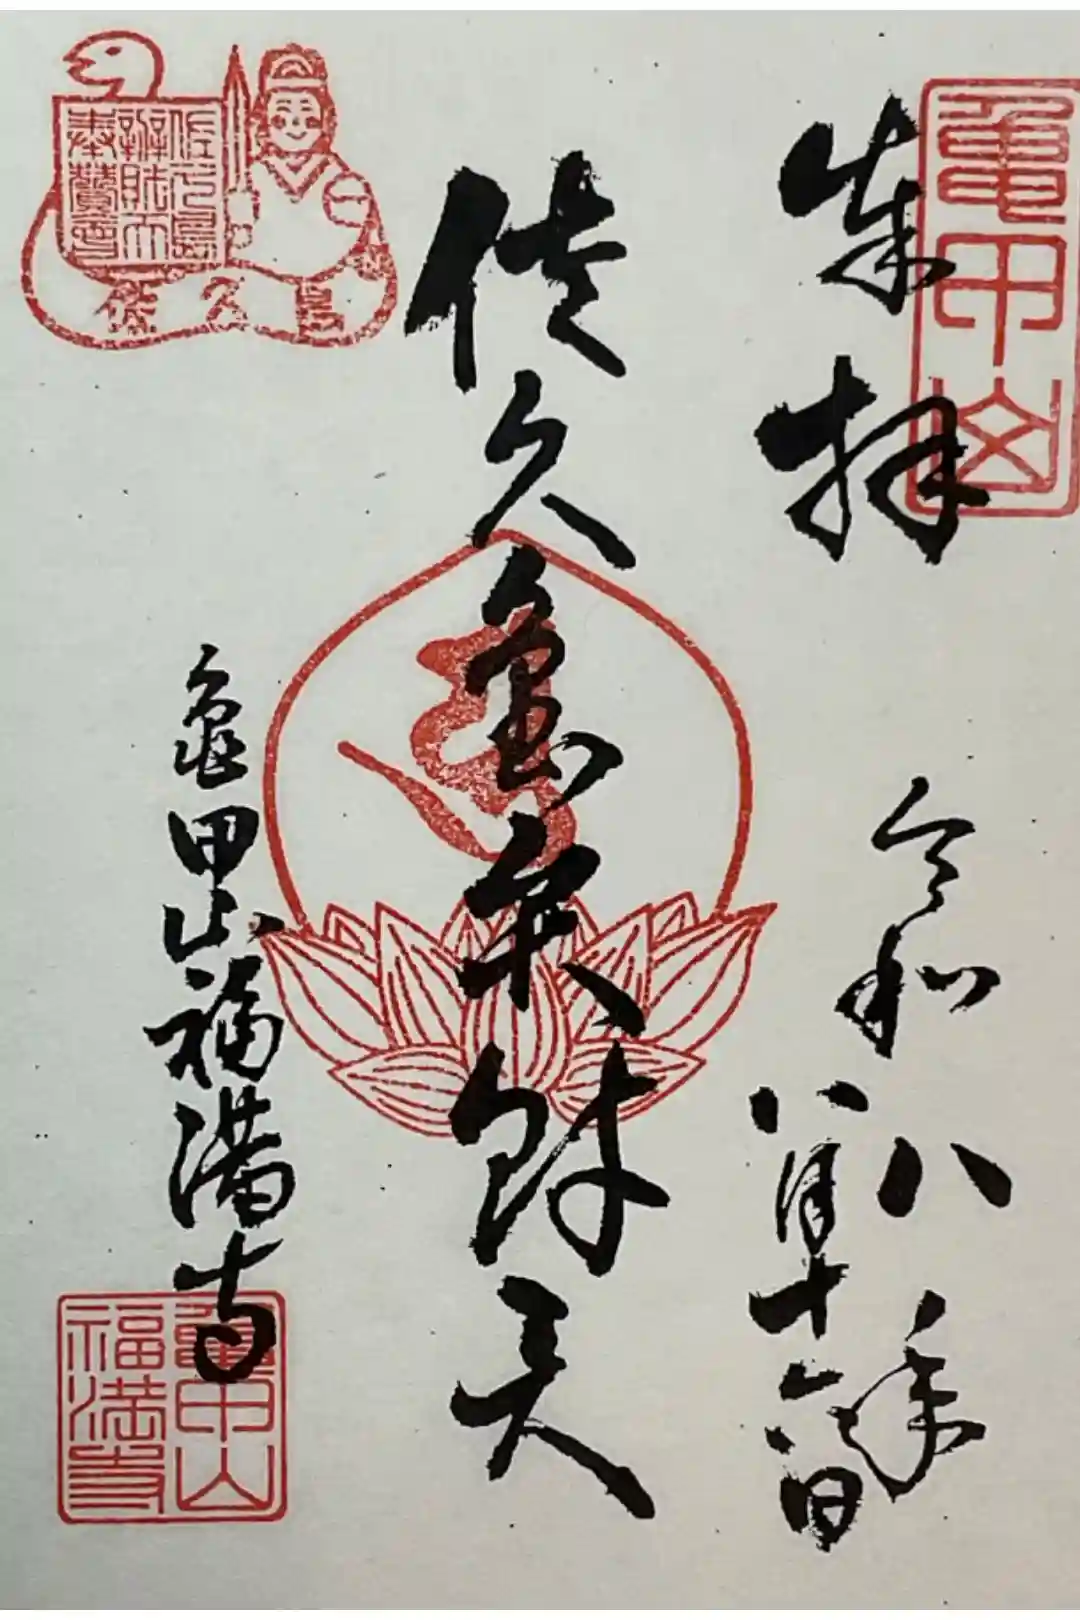 龜甲山
奉拝
令和八年
八月十六日
佐久島弁財天
佐久島
辯財天
奉賛会
佐久島
亀甲山福満寺
龜甲山
福満寺